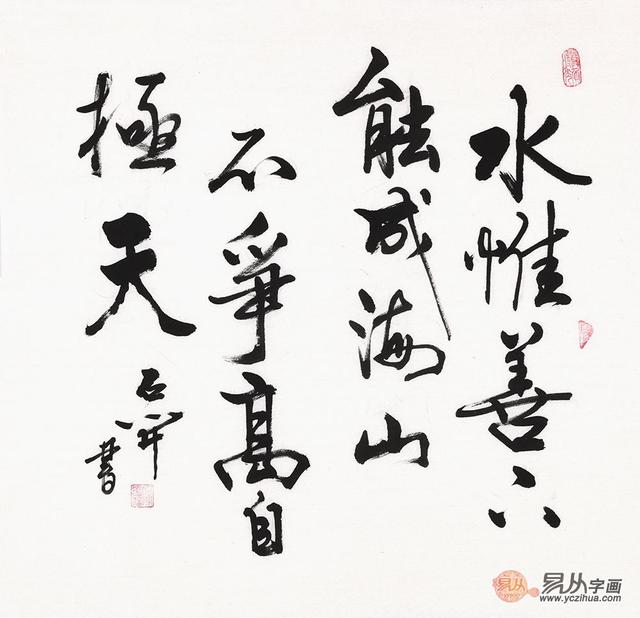 水惟善下
能成海山
不爭高自
極天
石開書
易从
易从字画
www.yczihua.com